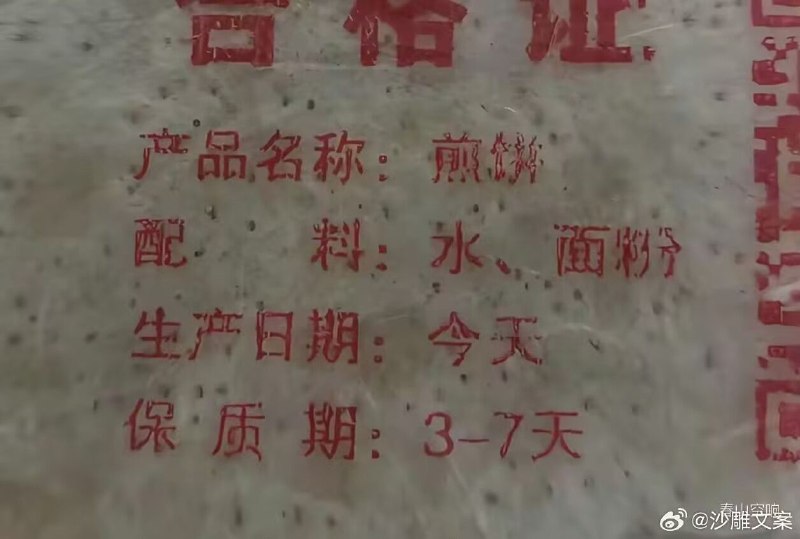 合格证
产品名称：煎饼
配 料：水、面粉
生产日期：今天
保 质 期：3-7天
春山空响
@沙雕文案